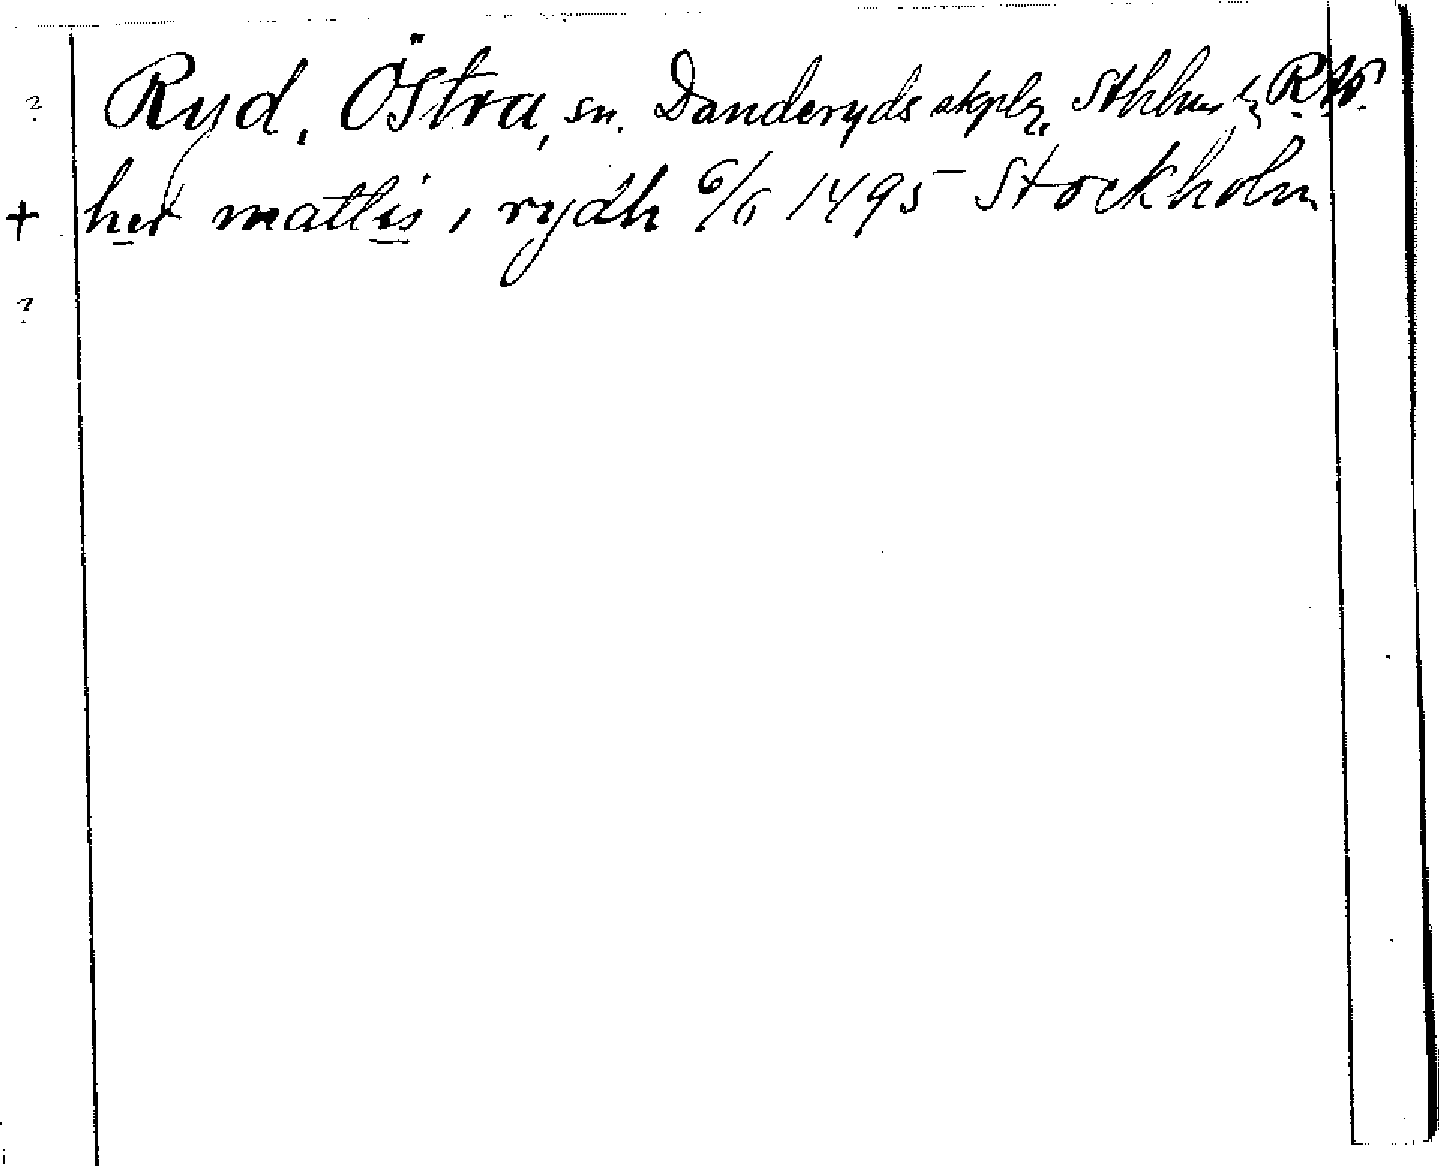 ? Ryd, Östra, sn. Danderyds skplg. Sthlms l. R.W.
+ her mattis i rydh 6/6 1495 Stockholm
?